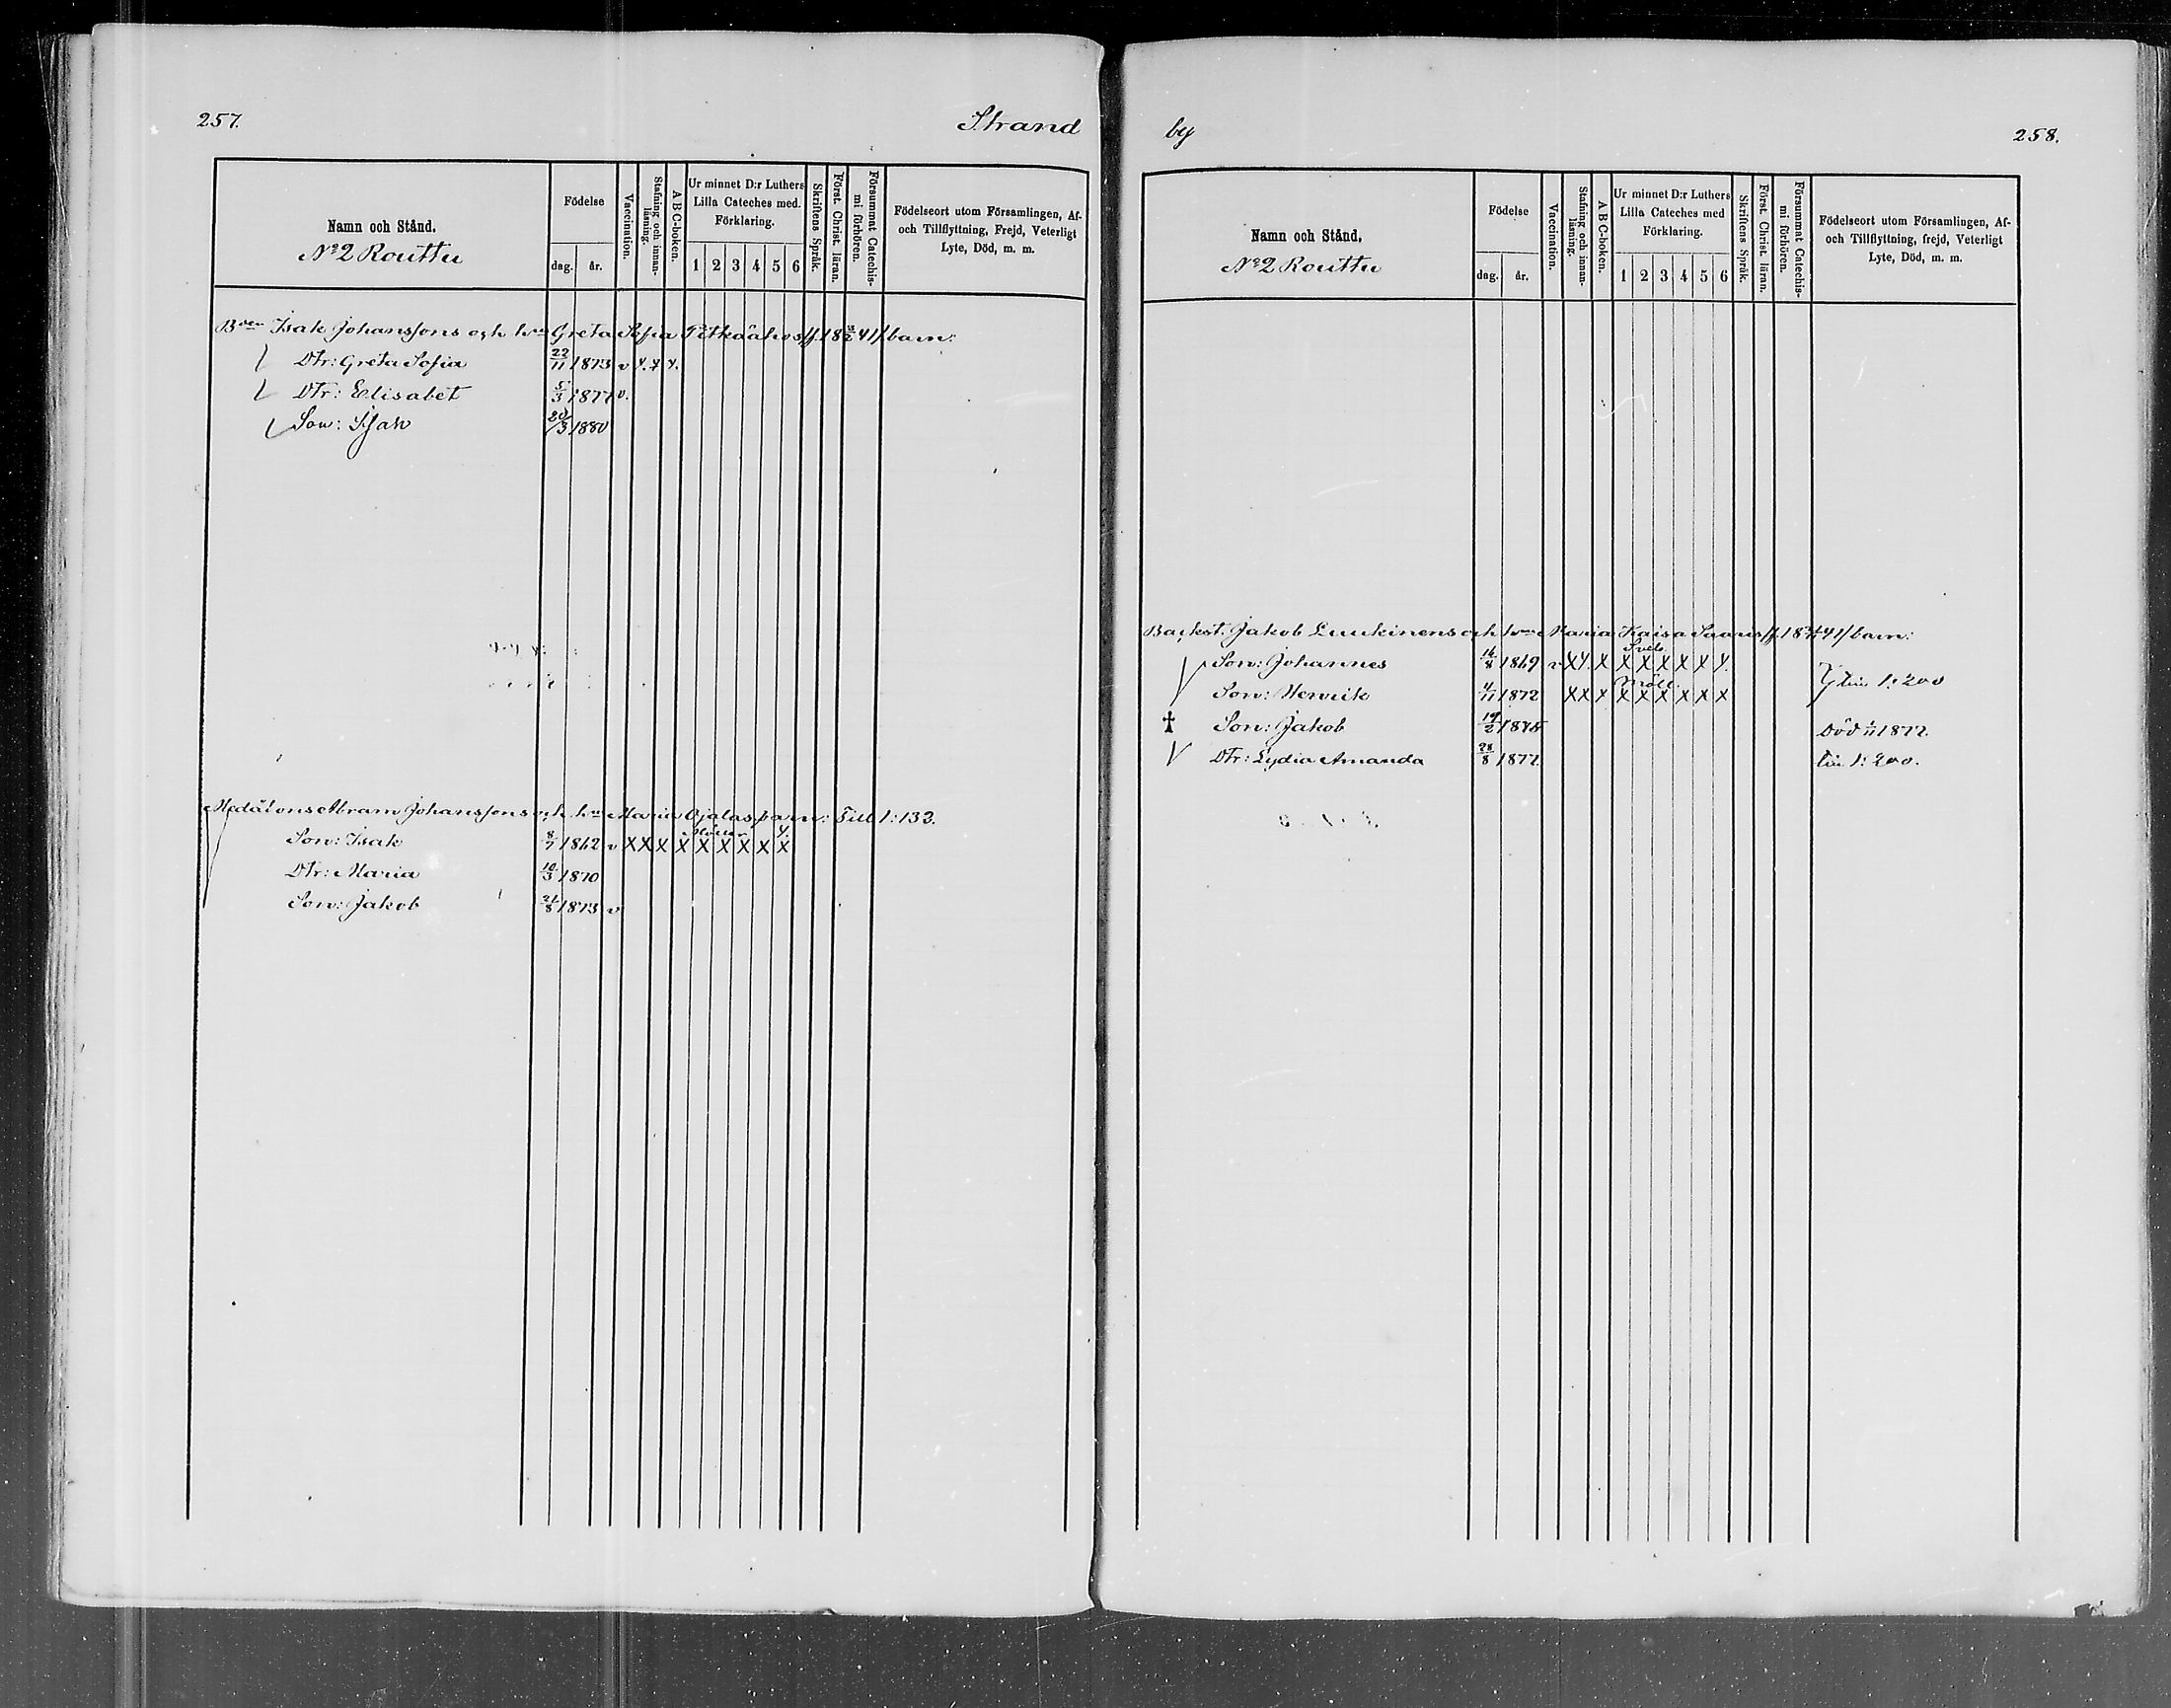 257. Strand
Namn och Stånd.
Nº 2 Routtu
Födelse
dag. år.
Vaccination.
Stafning och innan-läsning.
A B C-boken.
Ur minnet D:r Luthers
Lilla Cateches med.
Förklaring.
1 2 3 4 5 6
Skriftens Språk.
Först. Christ. läran.
Försummat Catechis-mi förhören.
Födelseort utom Församlingen, Af-
och Tillflyttning, Frejd, Veterligt
Lyte, Död, m. m.
Isak Johanssons och Greta Sofia barn:
Dtr: Greta Sofia 22/11 1873 v
Dtr: Elisabet 5/3 1877 v.
Son: Isak 1880
Abram Johanssons och Maria Ojalas barn: Till 1:133.
Son: Isak 8/7 1862 v X X X X X X X X X
Dtr: Maria 10/3 1870
Son: Jakob 1873 v
by 258.
Namn och Stånd.
Nº 2 Routtu
Födelse
dag. år.
Vaccination.
Stafning och innan-läsning.
A B C-boken.
Ur minnet D:r Luthers
Lilla Cateches med
Förklaring.
1 2 3 4 5 6
Skriftens Språk.
Först. Christ. läran.
Försummat Catechis-mi förhören.
Födelseort utom Församlingen, Af-
och Tillflyttning, frejd, Veterligt
Lyte, Död, m. m.
Backst. Jakob Luukinens och Maria Kaisa barn:
Son: Johannes 16/8 1869 v X X X X X X X
Son: Henrik 4/11 1872 X X X X X X X X X 1:200
† Son: Jakob Död 1877.
Dtr: Lydia Amanda 28/8 1877 1:200.